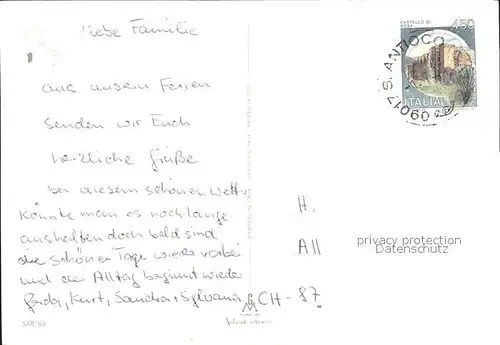 Liebe Familie
aus unsern Ferien
senden wir Euch
herzliche Grüße
bei diesem schönen Wetter
könnte man es noch lange
aushalten doch bald sind
die schönen Tage wieder vorbei
und der Alltag beginnt wieder
Kurt, Sandra + Sylvana
SAR. 63
CASTELLO DI
450
ITALIA
09017 S. ANTIOCO
H.
All
CH - 87
privacy protection
Datenschutz